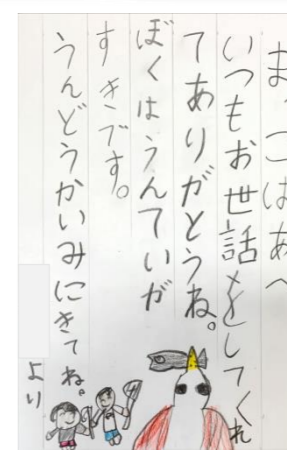 まっこはあへ
いつもお世話をしてくれ
てありがとうね。
ぼくはうんていが
すきです。
うんどうかいみにきてね。
より